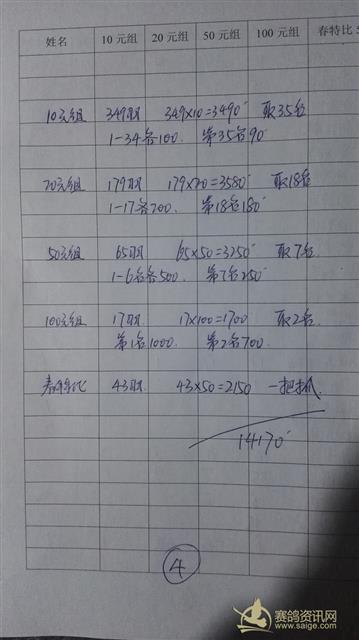 姓名 10 元组 20 元组 50 元组 100 元组 春特比 5
10元组 349羽 349×10=3490 取35名
1-34各100. 第35名90
20元组 179羽 179×20=3580 取18名
1-17各200. 第18名180
50元组 65羽 65×50=3250 取7名
1-6名各500. 第7名250
100元组 17羽 17×100=1700 取2名.
第1名1000. 第2名700.
春特比 43羽 43×50=2150 一把抓
14170
4
赛鸽资讯网
www.saige.com